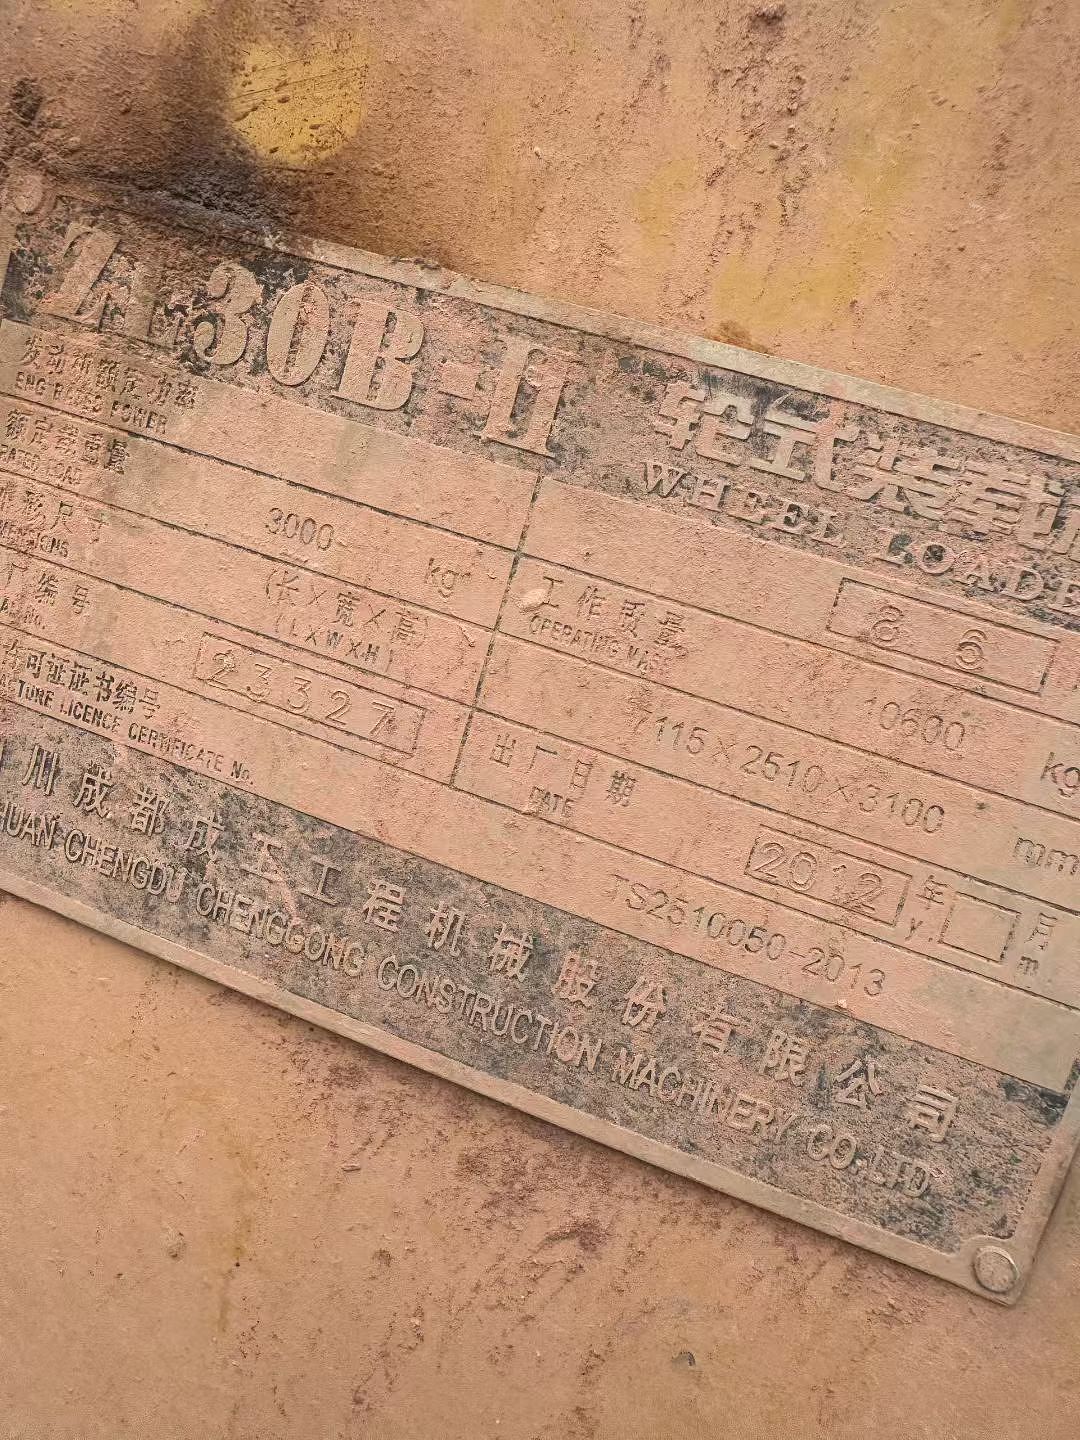 ZL30B-II 轮式装载机
WHEEL LOADE
发动机额定功率 86
ENG RATED POWER
额定载重量 3000 kg 工作质量 10600 kg
RATED LOAD OPERATING MASS
外形尺寸 (长×宽×高) 7115×2510×3100 mm
(L×W×H)
厂编号 23327 出厂日期 2012 年 月
No. DATE y. m
许可证证书编号 TS2510050-2013
LICENCE CERTIFICATE No.
川成都成工工程机械股份有限公司
HUAN CHENGDU CHENGGONG CONSTRUCTION MACHINERY CO.LTD